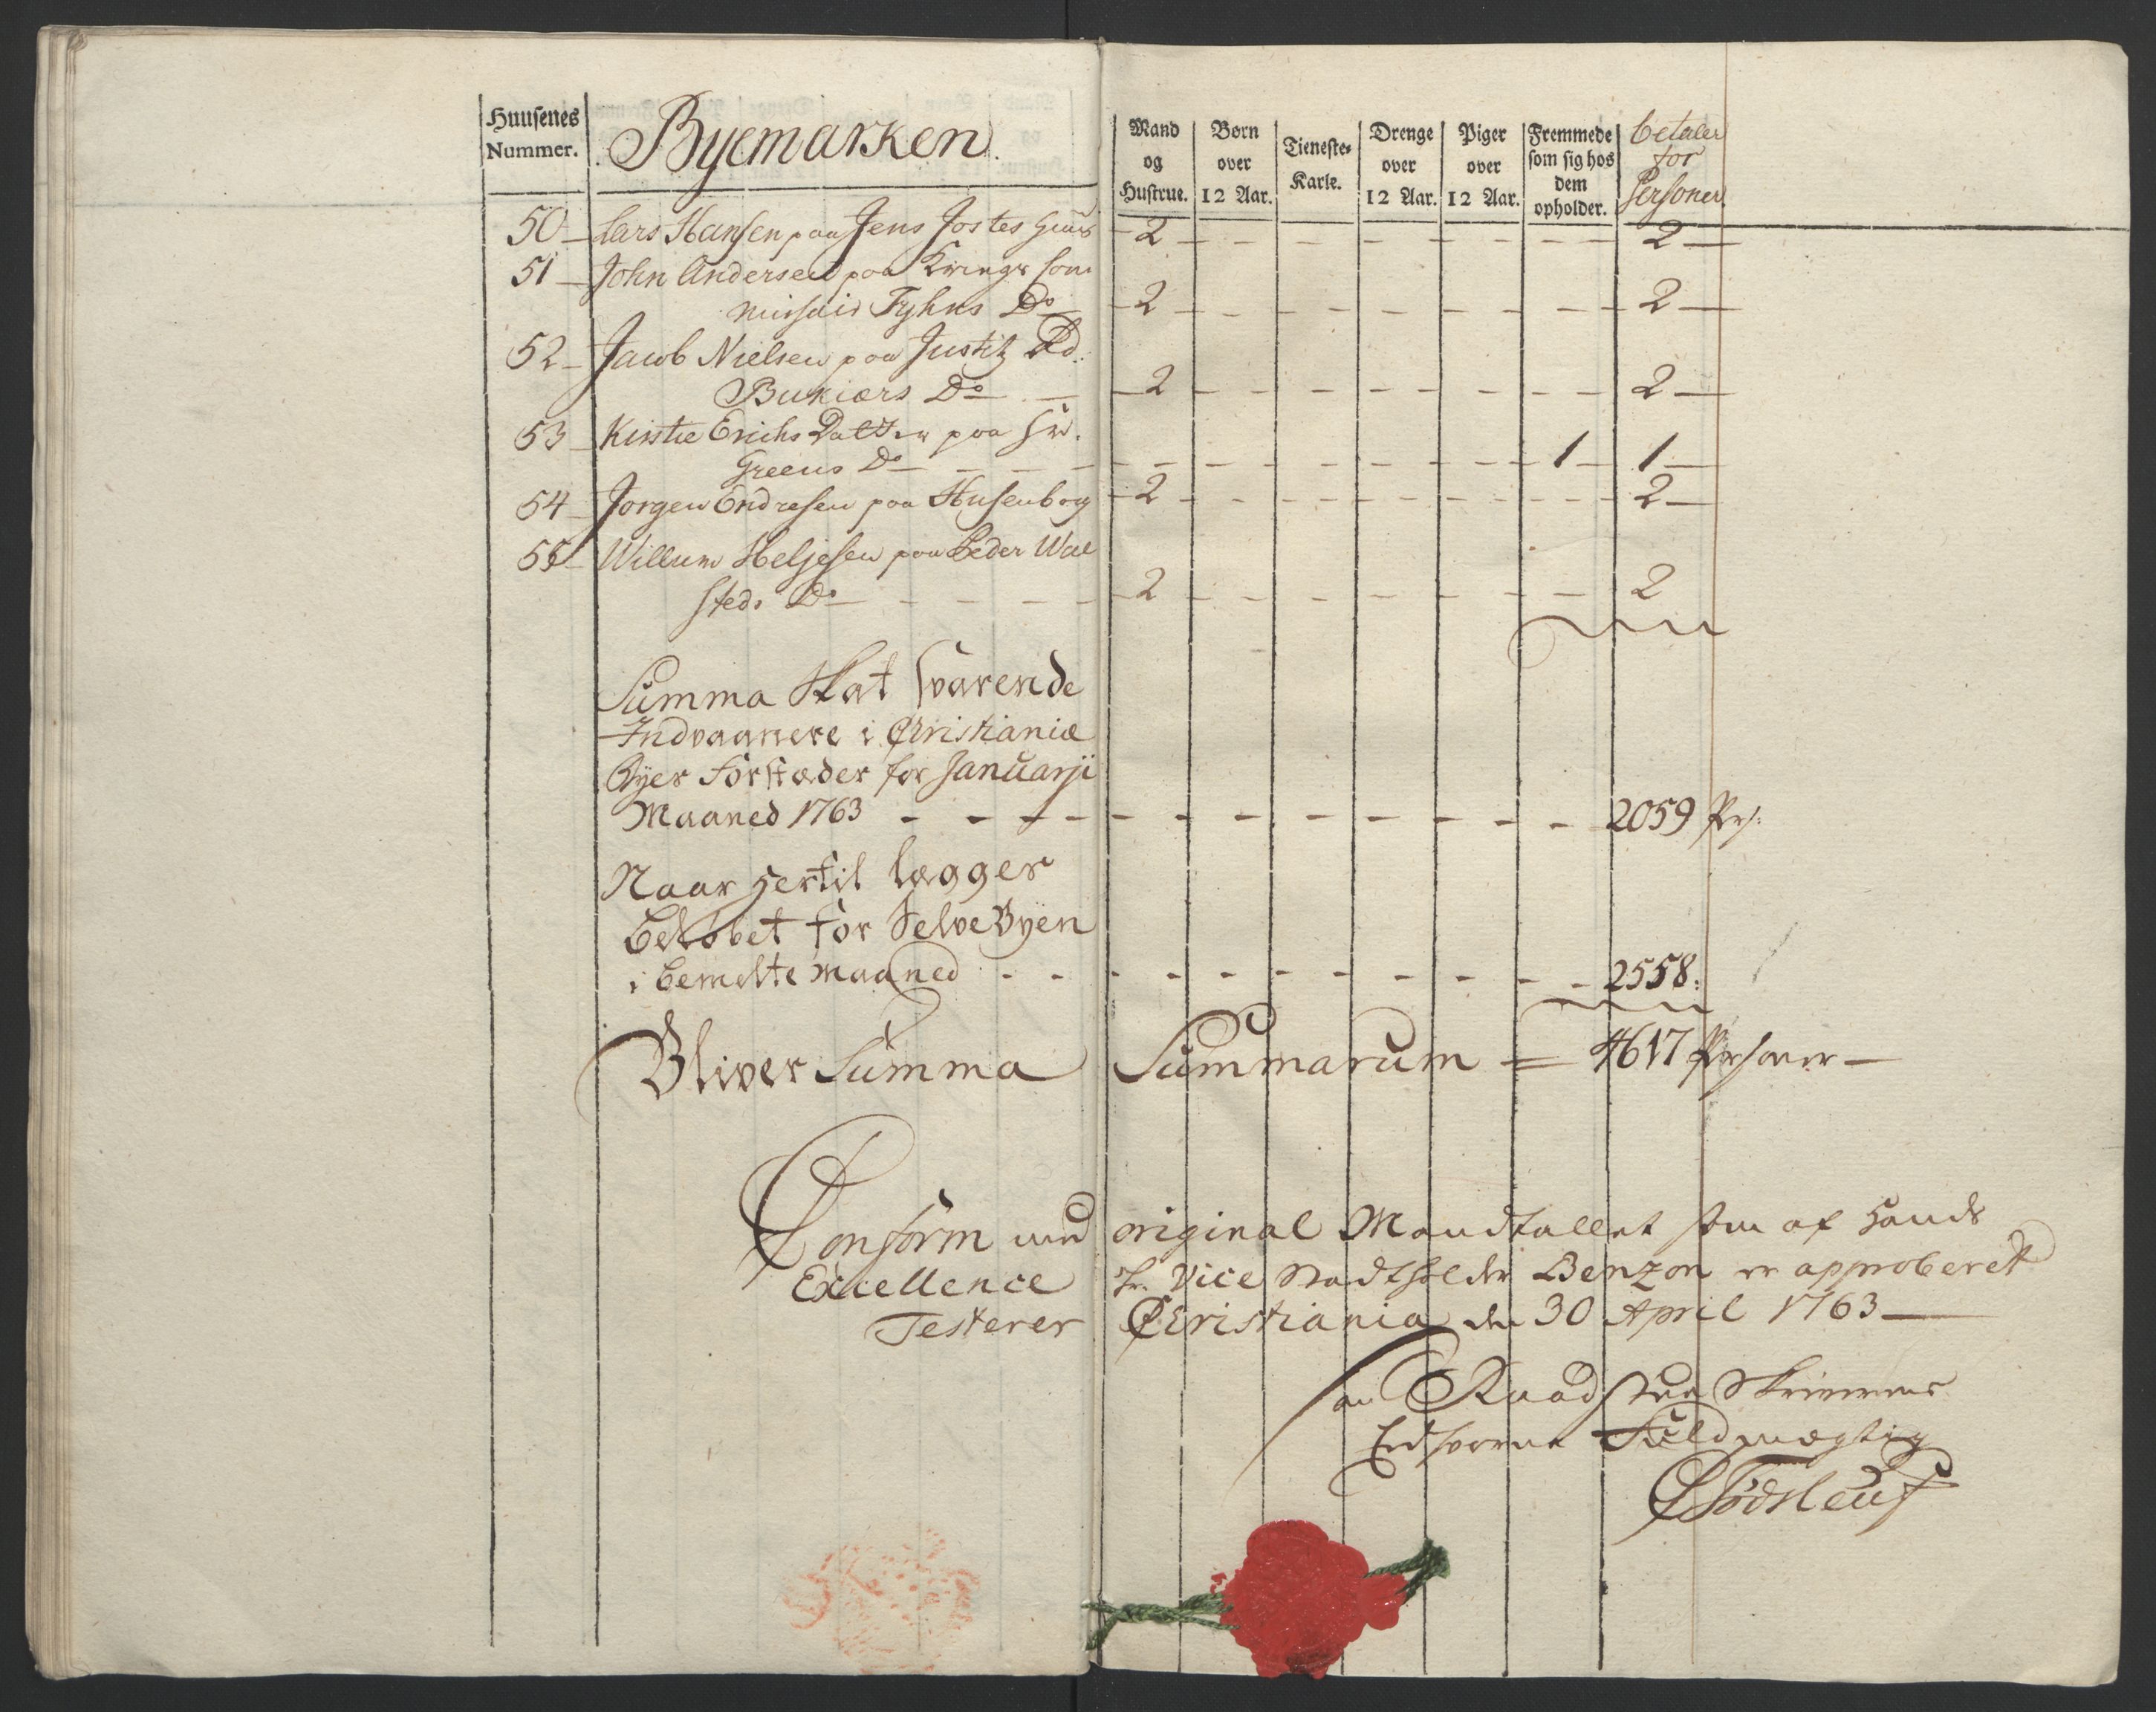 Huusenes Nummer.
Byemarken.
Mand og Hustrue.
Børn over 12 Aar.
Tieneste-Karle.
Drenge over 12 Aar.
Piger over 12 Aar.
Fremmede som sig hos dem opholder.
betaler for Personer.
50 – Lars Hansen paa Jens Jostes - 2 - - - - - - 2 -
51 – John Andersen paa Krigs Com
missair Tyhns Do - 2 - - - - - - 2 -
52 – Jacob Nielsen paa Justitz Rd:
Bukiærs Do - 2 - - - - - - 2 -
53 Kirstie Erichs Datter paa Hr.
Greens Do - - - - - - 1 - 1 -
54 – Jørgen Endresen paa Husenborg - 2 - - - - - - 2 -
55 – Willum Heljesen paa Peder Wal
steds Do - - - 2 - - - - - - 2
Summa Skat svarende
Indvaanere i Christianiæ
Byes Forstæder for Januarji
Maaned 1763 - - - - - - 2059 Prs:
Naar hertil lægges
beløbet for Selve Byen
i bemelte Maaned - - - - - - 2558:
Bliver Summa Summarum = 4617 Personer –
Conform med original Mandtallet som af Hands
Excellence Hr. Vice Stadtholder Benzon er approberet
Testerer Christiania den 30 April 1763 –
Raadstue Skriverens
Eedsvorne Fuldmægtig